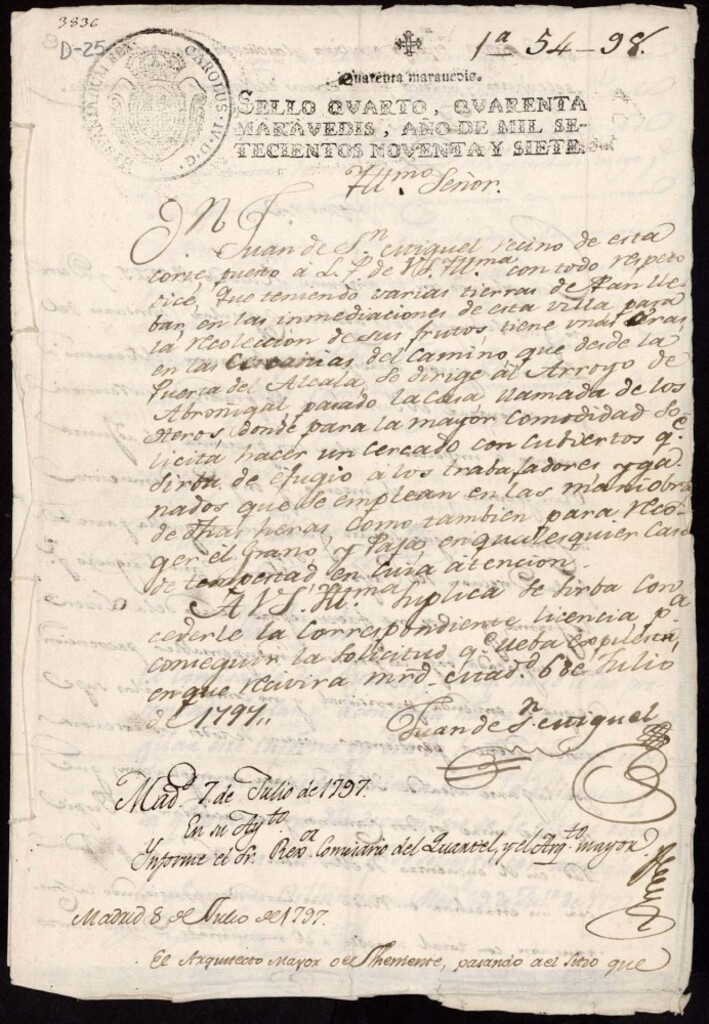 3836
D-25
1ª 54-98.
CAROLUS·IV·D·G· HISPANIAR REX
Quarenta maravedis.
SELLO QVARTO, QVARENTA
MARAVEDIS, AÑO DE MIL SE-
TECIENTOS NOVENTA Y SIETE.
Yllmo. Señor.
Juan de Sn. Miguel vecino de esta
corte, puesto a L. P. de VS. Yllma con todo respeto
dice, que teniendo varias tierras de Pan lle
bar, en las inmediaciones de esta villa, para
la recoleccion de sus frutos, tiene unas Eras,
en las Cercanias del Camino, que desde la
Puerta del Alcala, se dirige al Arroyo de
Abroñigal, pasado la Casa llamada de los
donde para la mayor Comodidad So
licita hacer un Cercado con Cubiertos q.e
sirba de efugio a los trabajadores y ga
nados que se emplean en las maniobras
de dhas heras, Como tambien para reco
ger el Grano, y Paja, en qualesquier Caso
de tempestad en Cuia atencion.
A VS. Yllma Suplica se sirba Con
cederle la Correspondiente licencia, pa
conseguir la solicitud q.e lleba expuesta,
en que recivira mrd. Madd. 6 de Julio
de 1797.,
Juan de Sn. Miguel
Madd. 7. de Julio de 1797.
En su Ayto
Informe el Sr. Rexor Comisario del Quartel, y el Arqto. mayor.
Madrid 8 de Julio de 1797.
El Arquitecto Mayor o el Theniente, pasando a el Sitio que